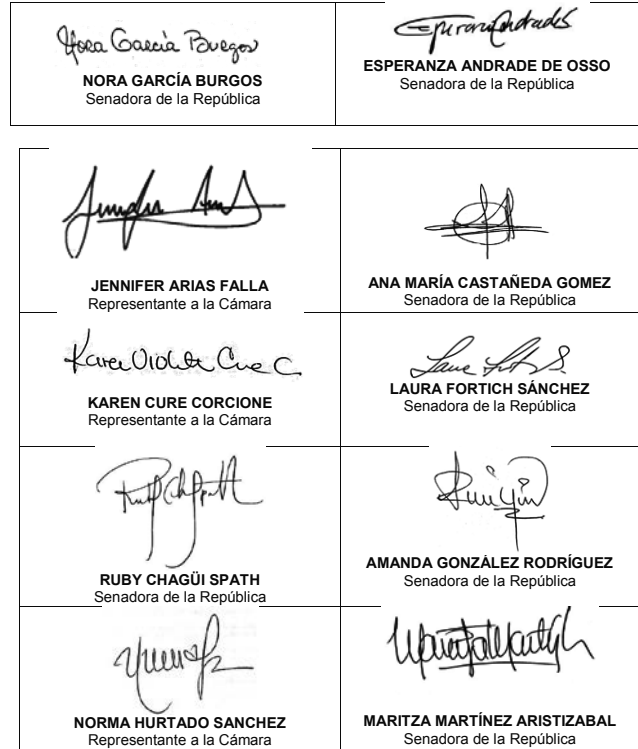 Nora García Burgos
NORA GARCÍA BURGOS
Senadora de la República
ESPERANZA ANDRADE DE OSSO
Senadora de la República
JENNIFER ARIAS FALLA
Representante a la Cámara
ANA MARÍA CASTAÑEDA GOMEZ
Senadora de la República
Karen Violeta Cure C
KAREN CURE CORCIONE
Representante a la Cámara
LAURA FORTICH SÁNCHEZ
Senadora de la República
RUBY CHAGÜI SPATH
Senadora de la República
AMANDA GONZÁLEZ RODRÍGUEZ
Senadora de la República
NORMA HURTADO SANCHEZ
Representante a la Cámara
MARITZA MARTÍNEZ ARISTIZABAL
Senadora de la República